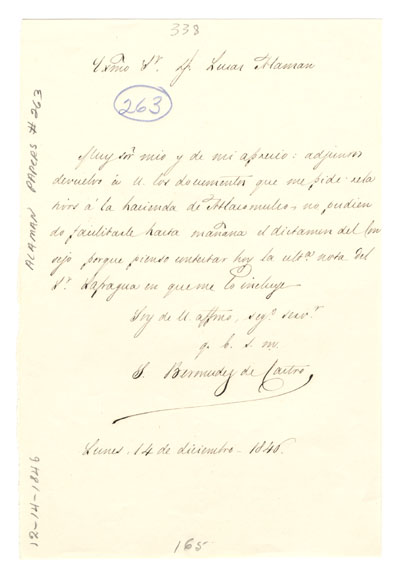 338
Exmo Sr. D. Lucas Alaman
263
Muy sór mio y de mi aprecio: adjuntos
devuelvo à U. los documentos que me pide rela
tivos á la hacienda de Atlacomulco, no pudien
do facilitarle hasta mañana el dictamen del Con
sejo porque pienso contestar hoy la ulta. nota del
Sr. Lafragua en que me lo incluye
Soy de U. affmo, segº. servr.
q. b. s. m.
S. Bermudez de Castro
Lunes, 14 de diciembre - 1846.
165
ALAMAN PAPERS # 263
12-14-1846